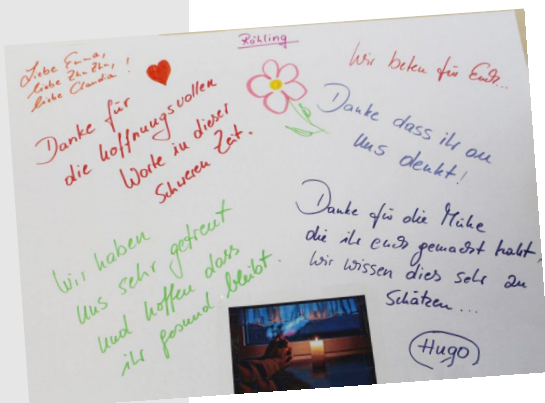 Röhling
Liebe Emma,
liebe Zha Zha,
liebe Claudia!
Danke für
die hoffnungsvollen
Worte in dieser
Schweren Zeit.
Wir beten für Euch...
Danke dass ihr an
uns denkt!
Wir haben
uns sehr gefreut
und hoffen dass
ihr gesund bleibt.
Danke für die Mühe
die ihr euch gemacht habt,
wir wissen dies sehr zu
Schätzen...
Hugo